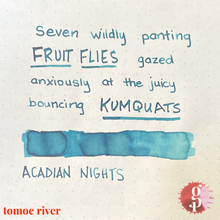 Seven wildly panting
FRUIT FLIES gazed
anxiously at the juicy
bouncing KUMQUATS
ACADIAN NIGHTS
tomoe river